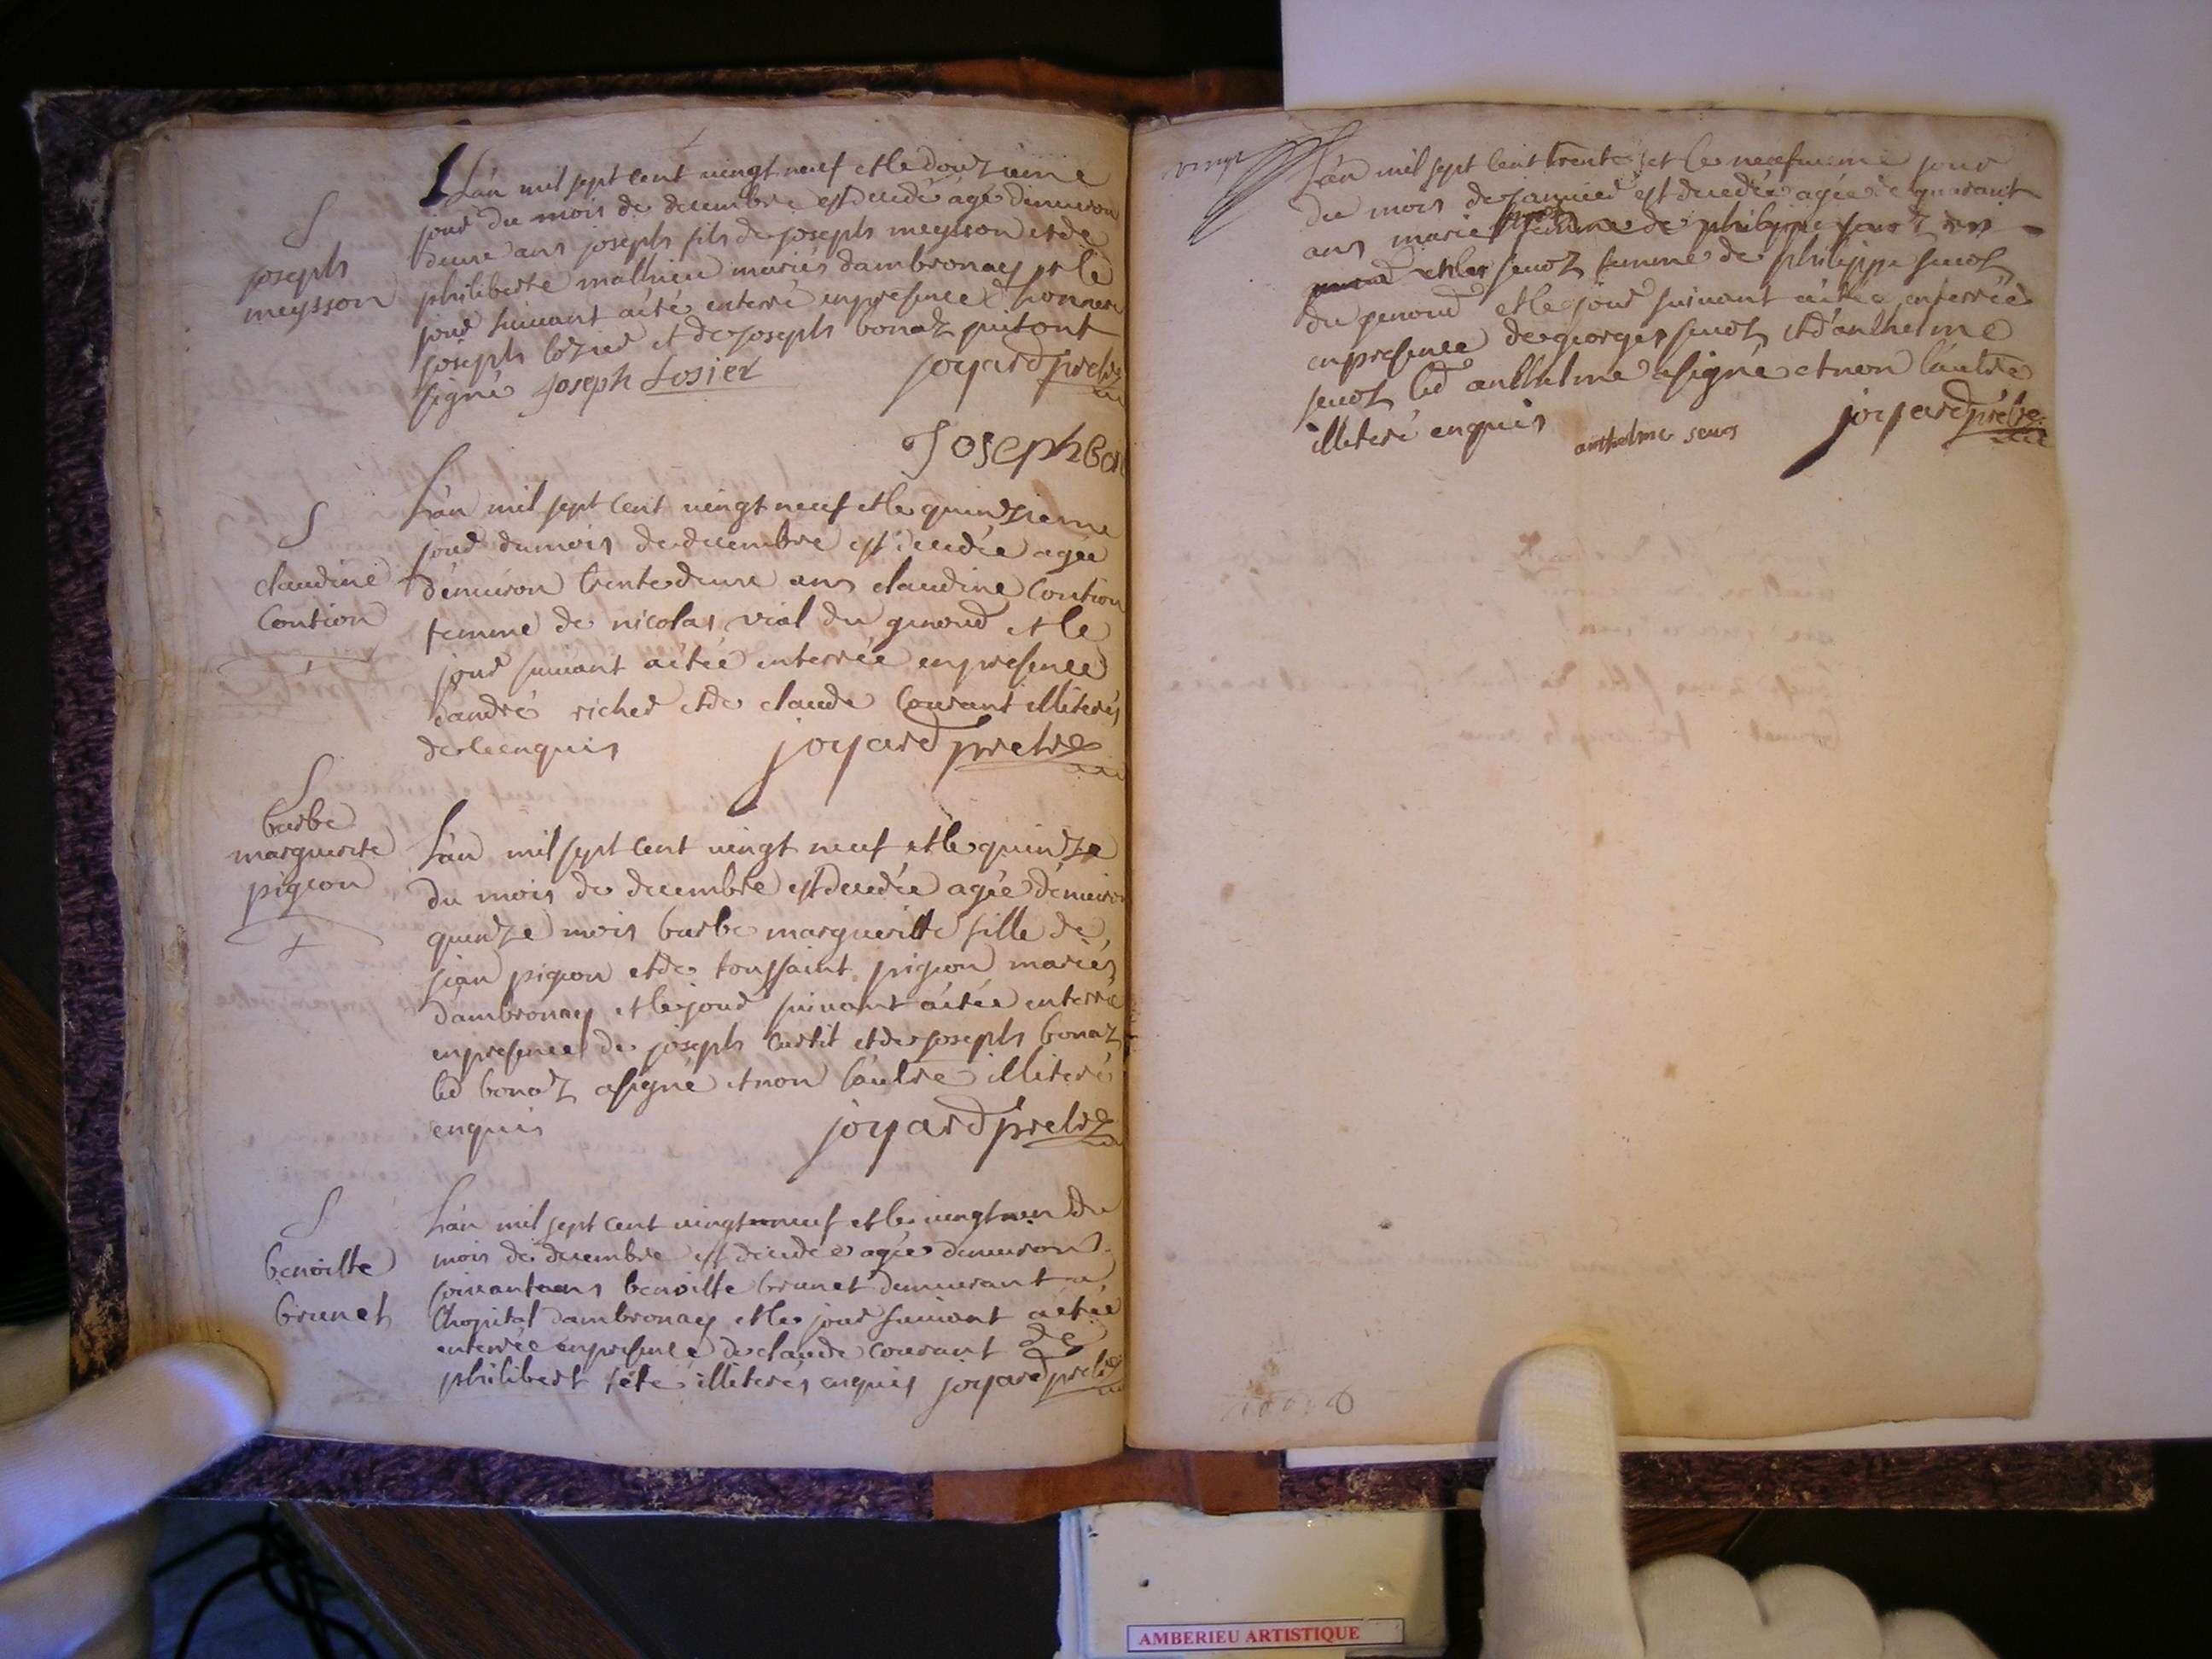 L'an mil sept cent vingt neuf et le douzieme
jour du mois de decembre est decedé agé d'environ
deux ans joseph fils de joseph meysson et de
philiberte mathieu mariés d'ambronay et le
jour suivant a été enterré en presence d'honnere
joseph lozier et de joseph bonaz qui ont
signé Joseph Losier joyard prebtre
Joseph Bon
S
joseph
meysson
L'an mil sept cent vingt neuf et le quinzieme
jour du mois de decembre est decedée agée
d'environ trente deux ans claudine Contion
femme de nicolas vial du genoud et le
jour suivant a étée enterrée en presence
d'andré richer et de claude Courant illiterés
de ce enquis joyard prebtre
S
claudine
Contion
L'an mil sept cent vingt neuf et le quinze
du mois de decembre est decedée agée d'environ
quinze mois barbe margueritte fille de
jean pigeon et de toussaint pigeon mariés
d'ambronay et le jour suivant a étée enterrée
en presence de joseph Curtit et de joseph bonaz
led bonaz a signé et non l'autre illiteré
enquis joyard prebtre
S
barbe
marguerite
pigeon
L'an mil sept cent vingt neuf et le vingt un du
mois de decembre est decedée agée d'environ
soixante ans benoitte brunet demeurant a
l'hopital d'ambronay et le jour suivant a étée
enterrée en presence de claude courant et de
philibert tété illiterés enquis joyard prebtre
S
benoitte
brunet
L'an mil sept cent trente et le neufvieme jour
du mois de janvier est decedée agée de quarant
ans marie femme de philippe senoz
senoz femme de philippe senoz
du genoud et le jour suivant a étée enterrée
en presence de george senoz et d'anthelme
senoz led anthelme a signé et non l'autre
illiteré enquis anthelme senos joyard prebtre
AMBERIEU ARTISTIQUE